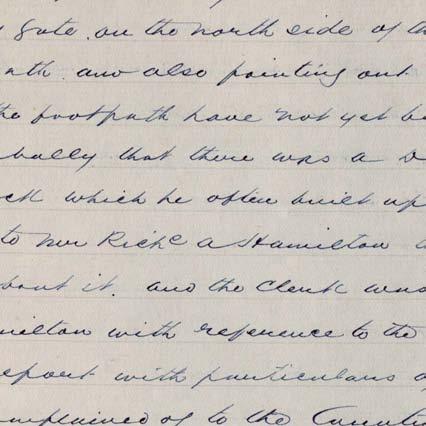 gate. on the north side of th
ath. and also pointing out
the footpath have not yet be
bally that there was a D
ck which he often built up
to Mr Richd A Hamilton a
bout it. and the Clerk was
milton with reference to the
eport with particulars o
omplained of to the Count